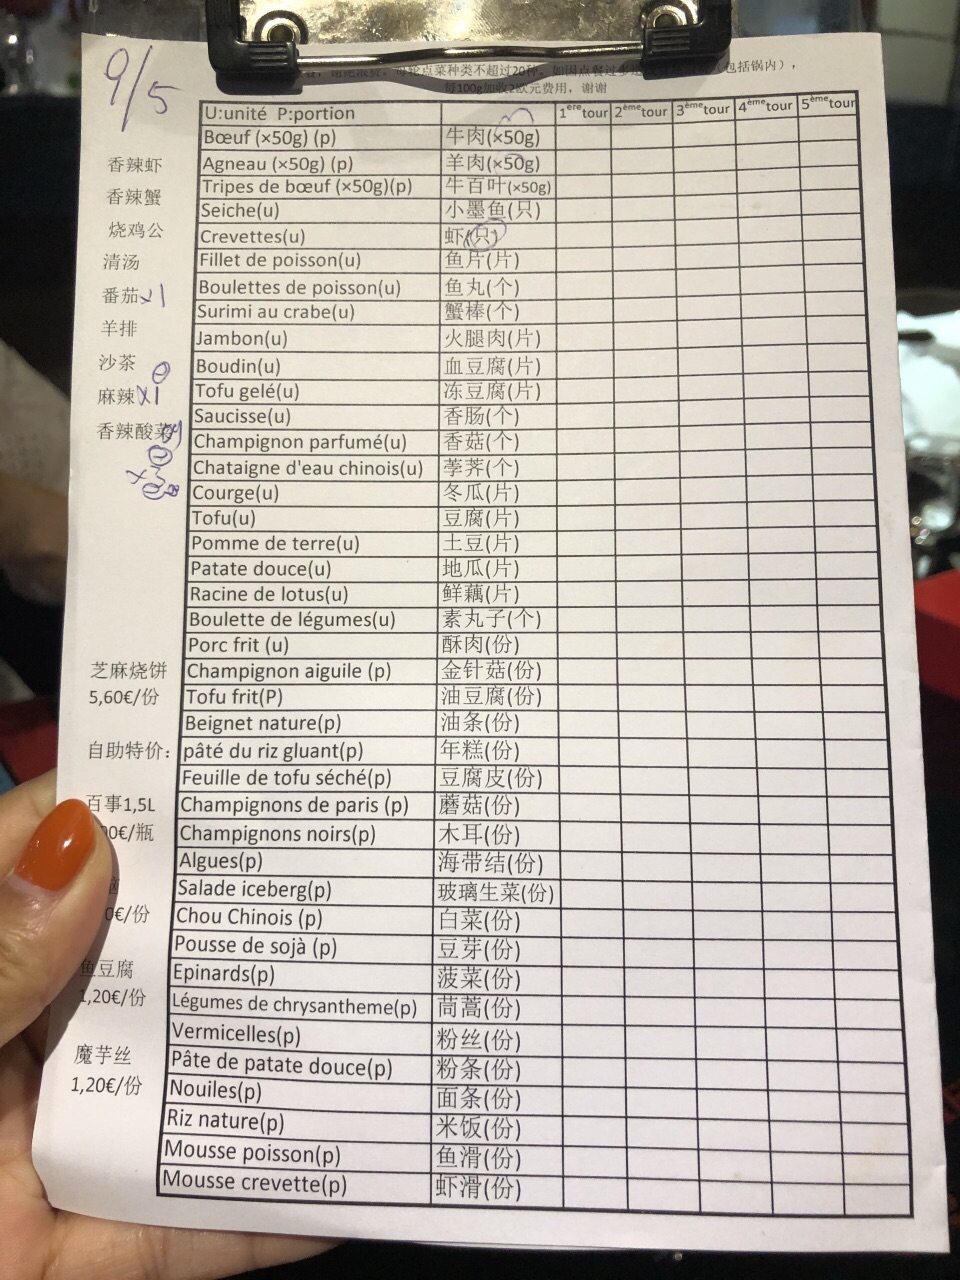 9/5
每轮点菜种类不超过20种。如因点餐过多
(包括锅内),
每100g加收2欧元费用，谢谢
U:unité P:portion 1ère tour 2ème tour 3ème tour 4ème tour 5ème tour
Bœuf (×50g) (p) 牛肉(×50g)
香辣虾 Agneau (×50g) (p) 羊肉(×50g)
香辣蟹 Tripes de bœuf (×50g)(p) 牛百叶(×50g)
Seiche(u) 小墨鱼(只)
烧鸡公 Crevettes(u) 虾(只)
清汤 Fillet de poisson(u) 鱼片(片)
番茄x1 Boulettes de poisson(u) 鱼丸(个)
羊排 Surimi au crabe(u) 蟹棒(个)
Jambon(u) 火腿肉(片)
沙茶 Boudin(u) 血豆腐(片)
麻辣x1 Tofu gelé(u) 冻豆腐(片)
Saucisse(u) 香肠(个)
香辣酸菜 Champignon parfumé(u) 香菇(个)
Chataigne d'eau chinois(u) 荸荠(个)
Courge(u) 冬瓜(片)
Tofu(u) 豆腐(片)
Pomme de terre(u) 土豆(片)
Patate douce(u) 地瓜(片)
Racine de lotus(u) 鲜藕(片)
Boulette de légumes(u) 素丸子(个)
Porc frit (u) 酥肉(份)
芝麻烧饼 Champignon aiguile (p) 金针菇(份)
5,60€/份 Tofu frit(P) 油豆腐(份)
Beignet nature(p) 油条(份)
自助特价: pâté du riz gluant(p) 年糕(份)
Feuille de tofu séché(p) 豆腐皮(份)
百事1,5L Champignons de paris (p) 蘑菇(份)
00€/瓶 Champignons noirs(p) 木耳(份)
Algues(p) 海带结(份)
Salade iceberg(p) 玻璃生菜(份)
0€/份 Chou Chinois (p) 白菜(份)
Pousse de sojà (p) 豆芽(份)
鱼豆腐 Epinards(p) 菠菜(份)
1,20€/份 Légumes de chrysantheme(p) 茼蒿(份)
Vermicelles(p) 粉丝(份)
魔芋丝 Pâte de patate douce(p) 粉条(份)
1,20€/份 Nouiles(p) 面条(份)
Riz nature(p) 米饭(份)
Mousse poisson(p) 鱼滑(份)
Mousse crevette(p) 虾滑(份)